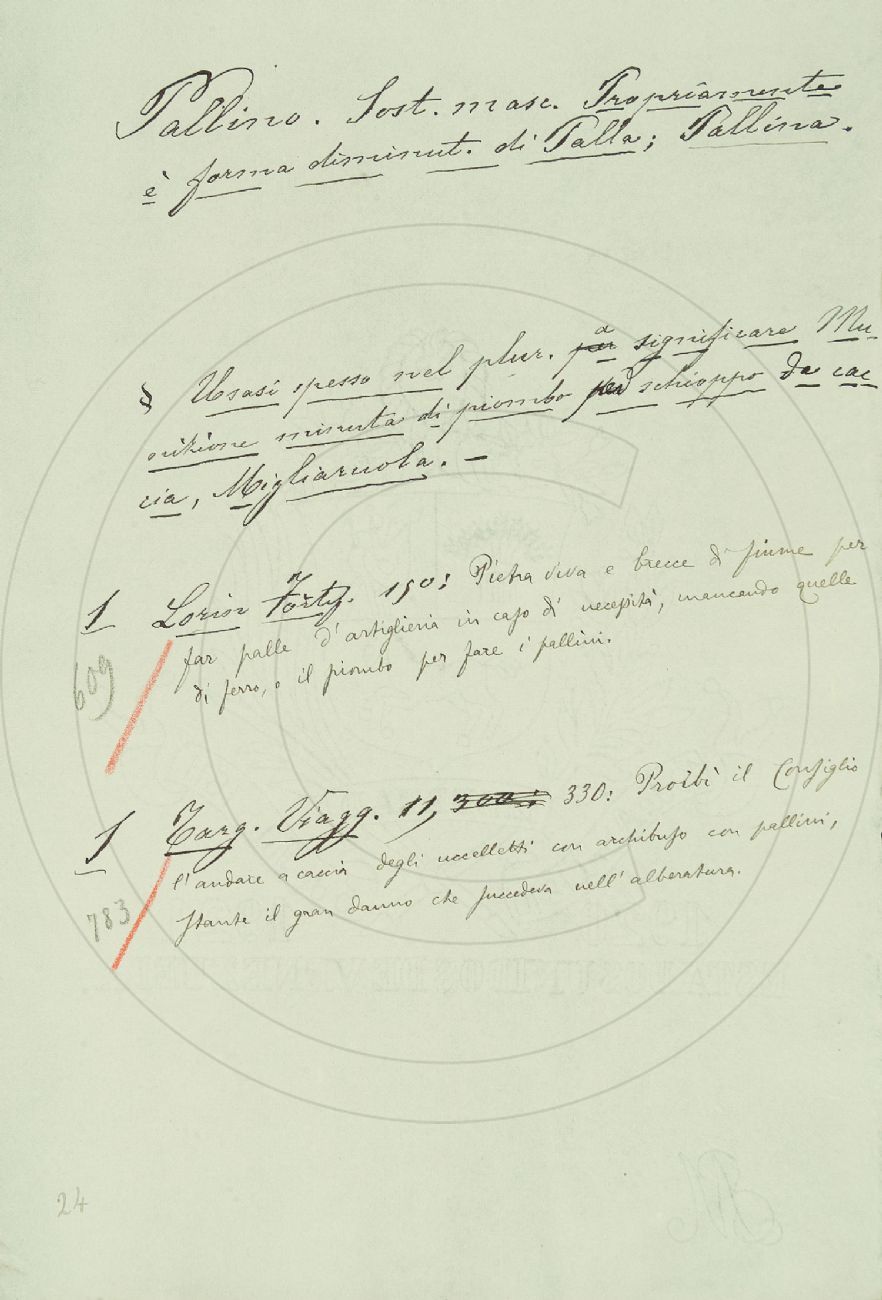 Pallino. Sost. masc. Propriamente
è forma diminut. di Palla; Pallina.
§ Usasi spesso nel plur. a significare Mu-
nizione minuta di piombo per schioppo da cac
cia, Migliaruola. —
1 Lorin Fortif. 190: Pietra viva e brecce di fiume per
far palle d'artiglieria in caso di necessità, mancando quelle
di ferro, o il piombo per fare i pallini.
609
1 Targ. Viagg. 11, 300: 330: Proibì il Consiglio
l'andare a caccia degli uccelletti con archibuso con pallini,
stante il gran danno che succedeva nell'alberatura.
783
24